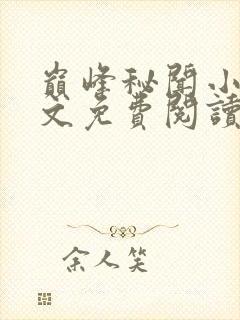 巔峰秘聞小
文免費閱讀
余人笑